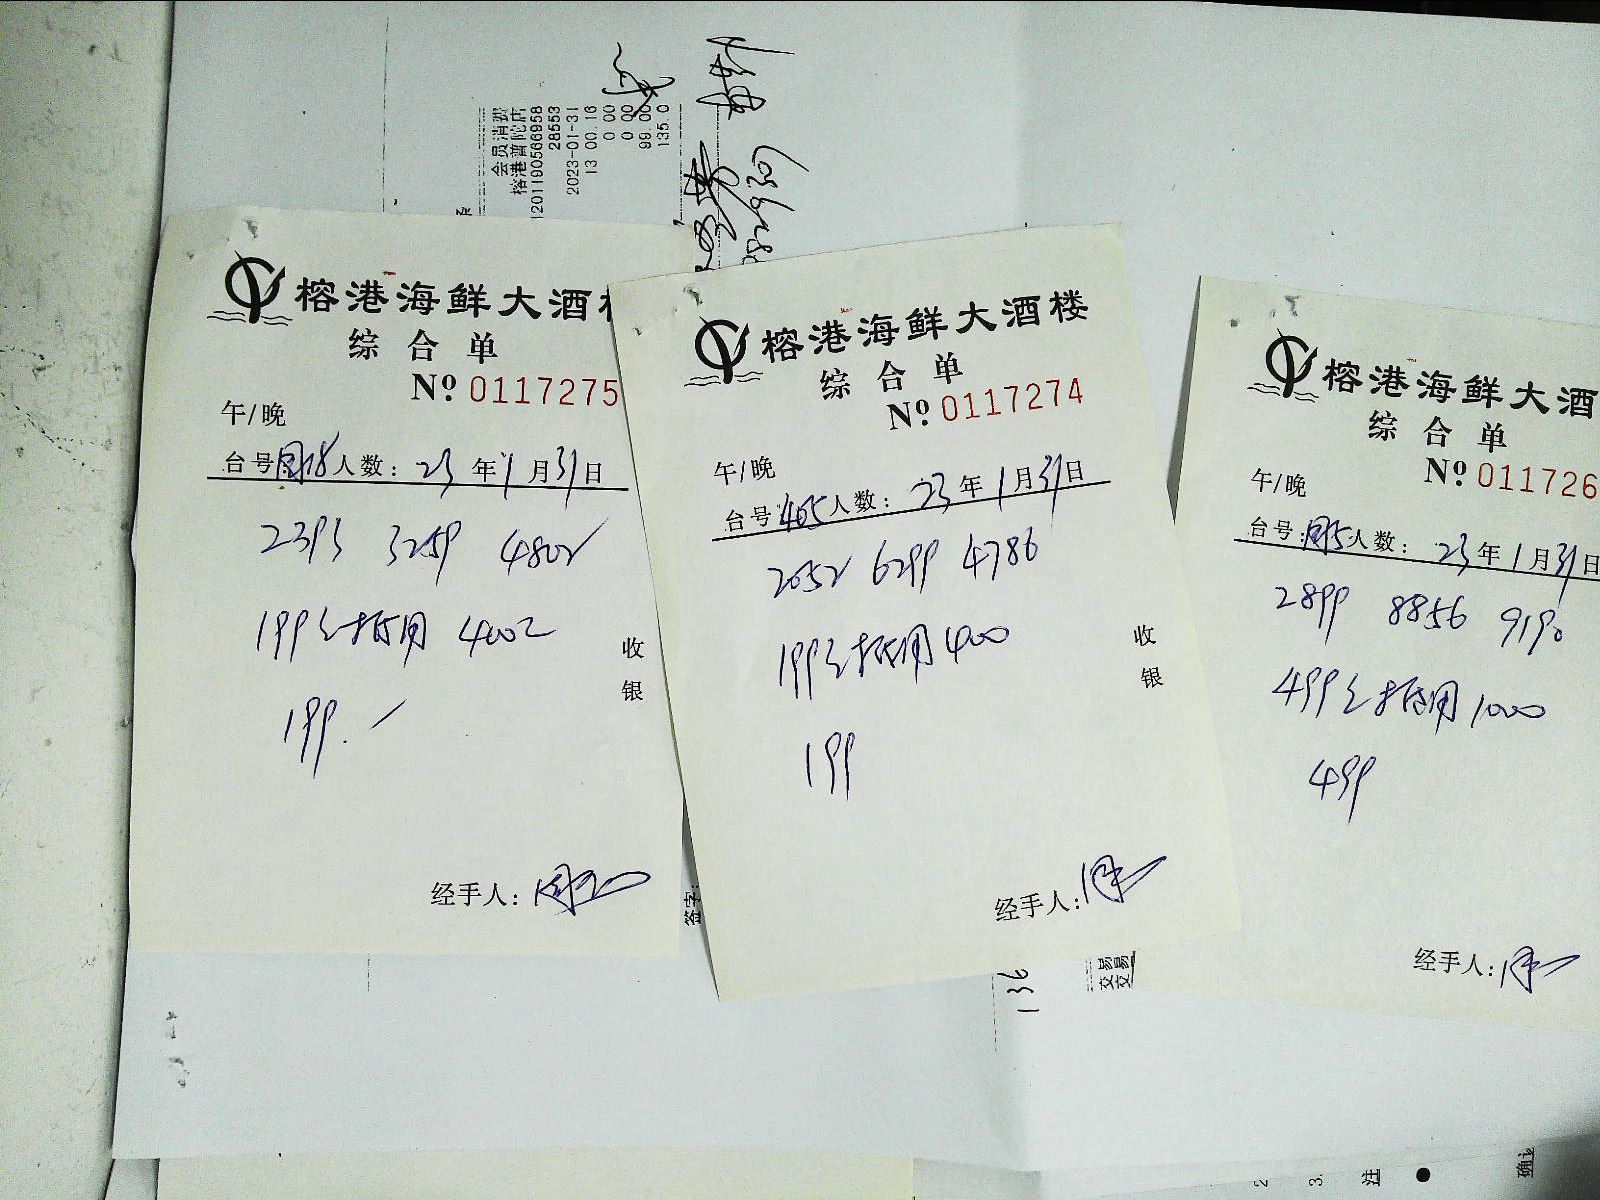 会员消费
榕港普陀店
1201190566958
28553
2023-01-31
13 00 16
0 00
0 00
99 00
135.0
榕港海鲜大酒
综合单
Nº 0117275
午/晚
台号 人数: 23年1月31日
2393 3259 4802
199元抵用 400元
199.
收
银
经手人:
榕港海鲜大酒楼
综合单
Nº 0117274
午/晚
台号 405 人数: 23年1月31日
2052 6299 4786
199元抵用 400
199
收
银
经手人:
榕港海鲜大酒
综合单
Nº 011726
午/晚
台号: 人数: 23年1月31日
2899 8856 9190
499元抵用 1000
499
经手人:
签字:
136
交易
交易
2
3.
注
●
确认